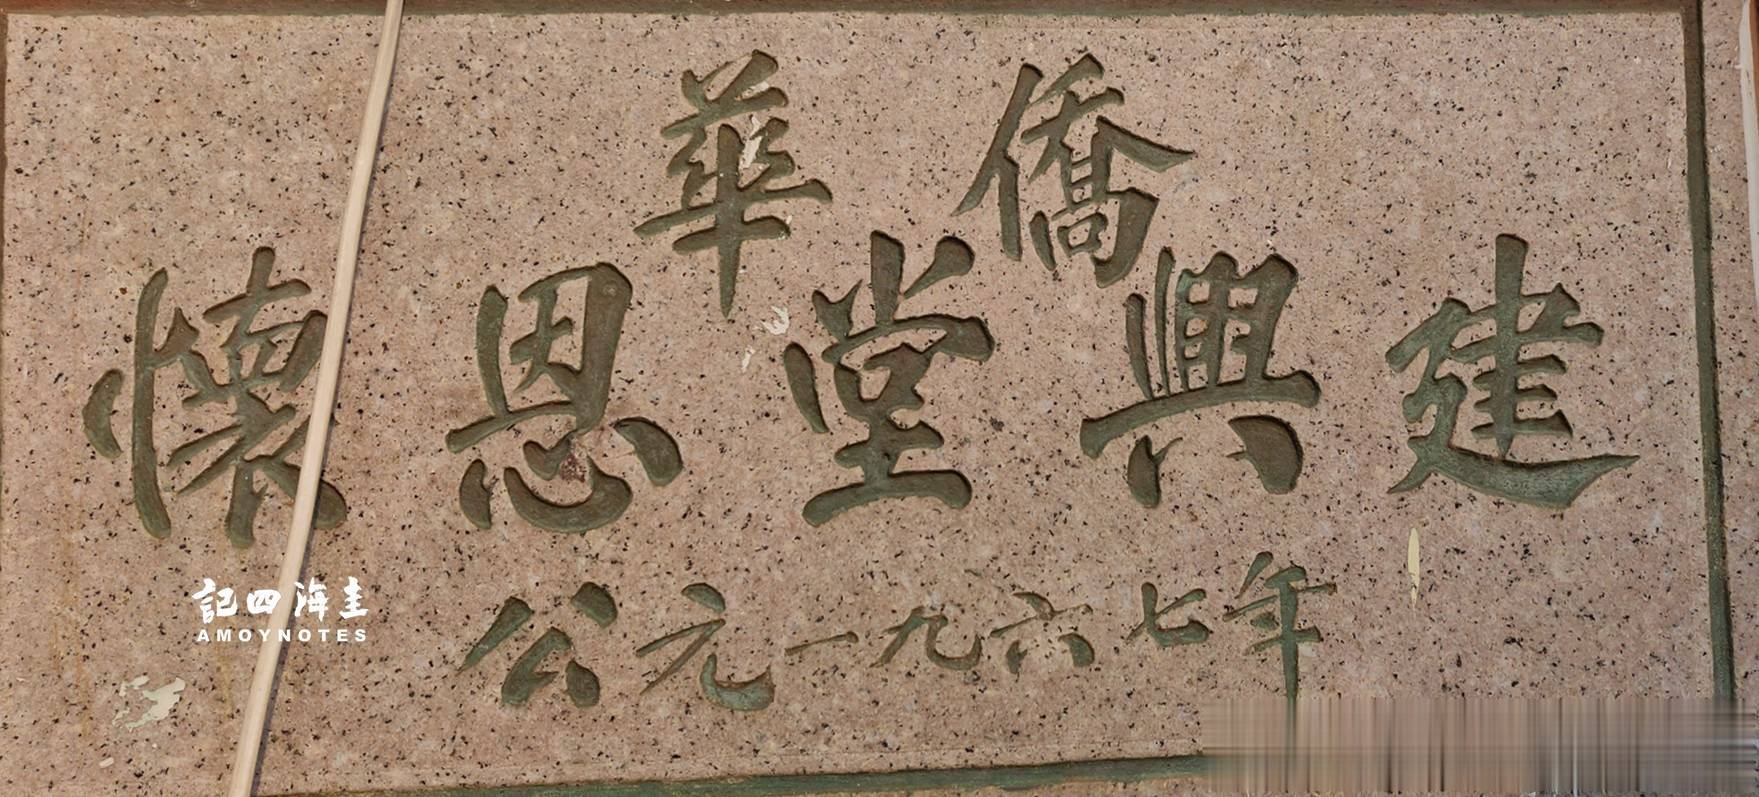 華僑
懷恩堂興建
公元一九六七年
記四海圭
AMOYNOTES